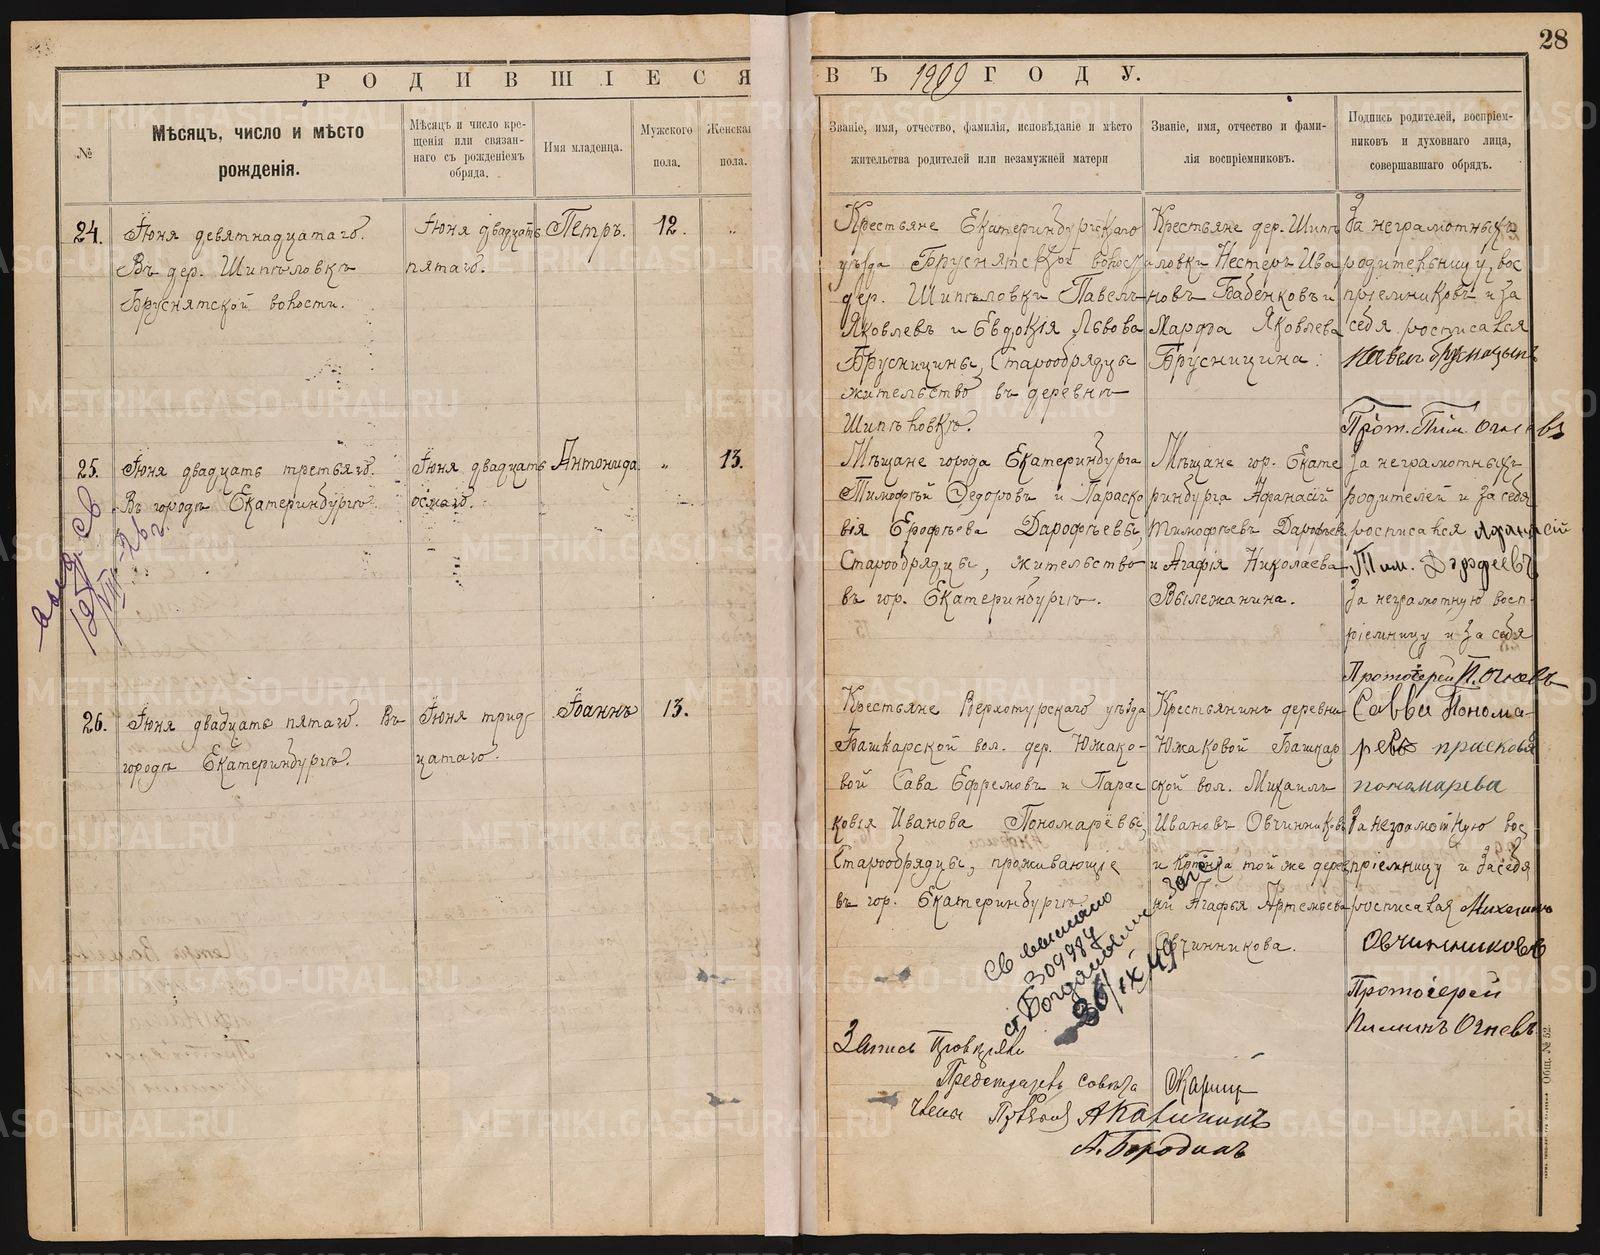 28
РОДИВШІЕСЯ ВЪ 1909 ГОДУ.
№
Мѣсяцъ, число и мѣсто рожденія.
Мѣсяцъ и число крещенія или связаннаго съ рожденіемъ обряда.
Имя младенца.
Мужского пола.
Женска пола.
Званіе, имя, отчество, фамилія, исповѣданіе и мѣсто
жительства родителей или незамужней матери
Званіе, имя, отчество и фами-
лія воспріемниковъ.
Подпись родителей, воспріем-
никовъ и духовнаго лица,
совершавшаго обрядъ.
24.
Іюня девятнадцатаго.
Въ дер. Шипѣловкѣ
Бруснятской волости.
Іюня двадцать
пятаго.
Петръ.
12.
Крестьяне Екатеринбургскаго
уѣзда Бруснятской волости
дер. Шипѣловки Павелъ
Яковлевъ и Евдокія Львова
Брусницины, Старообрядцы
жительство въ деревнѣ
Шипѣловкѣ.
Крестьяне дер. Шипѣ
ловки Несторъ Ива
новъ Бабенковъ и
Марфа Яковлева
Брусницина.
За неграмотныхъ
родительницу, вос
пріемниковъ и за
себя росписался
Павелъ Брусницынъ
Прот. Пим. Огневъ
25.
Іюня двадцать третьяго.
Въ городѣ Екатеринбургѣ.
Іюня двадцать
осмаго.
Антонида
"
13.
Мѣщане города Екатеринбурга
Тимофѣй Федоровъ и Параско
вія Ерофѣева Дарофѣевы,
Старообрядцы, жительство
въ гор. Екатеринбургѣ.
Мѣщане гор. Екате
ринбурга Афанасій
Тимофѣевъ Дарофѣевъ
и Агафія Николаева
Вылежанина.
За неграмотныхъ
родителей и за себя
росписался Афанасій
Тим. Дарофеевъ
За неграмотную восп-
ріемницу и за себя
Протоіерей П. Огневъ
выд. св
19 VIII-26 г.
26.
Іюня двадцать пятаго. Въ
городѣ Екатеринбургѣ.
Іюня трид-
цатаго.
Іоаннъ
13.
Крестьяне Верхотурскаго уѣзда
Башкарской вол. дер. Южако-
вой Сава Ефремовъ и Парас
ковія Иванова Пономарёвы,
Старообрядцы, проживающіе
въ гор. Екатеринбургѣ
Крестьянинъ деревни
Южаковой Башкар
ской вол. Михаилъ
Ивановъ Овчинниковъ
и той же дерев
ни Агафья Артемьева
Овчинникова.
Савва Понома-
ревъ прасковья
пономарева
За неграмотную вос
пріемницу и за себя
росписался Михаилъ
Овчинниковъ
Протоіерей
Пиминъ Огневъ
Св выписано
309984
Богданович
30/IX 49
Запись провѣряли
Председатель совѣта
Члены
А Калининъ
А. Бородинъ
Общ. № 52.
METRIKI.GASO-URAL.RU